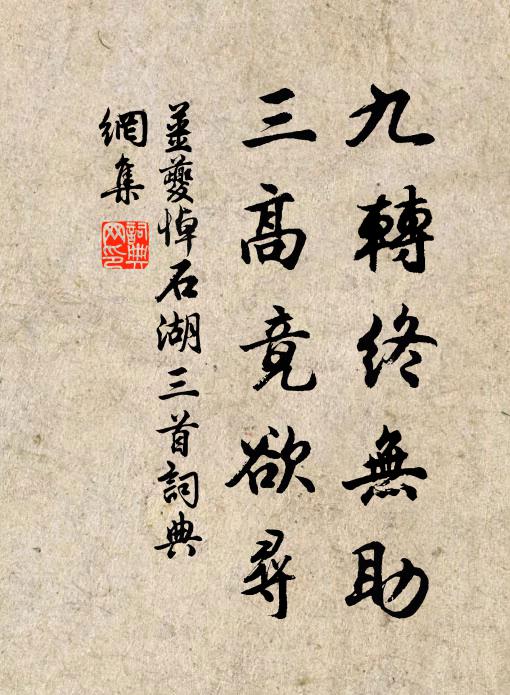 九轉終無助
三高竟欲尋
姜夔悼石湖三首詞典
網集
詞典
网印